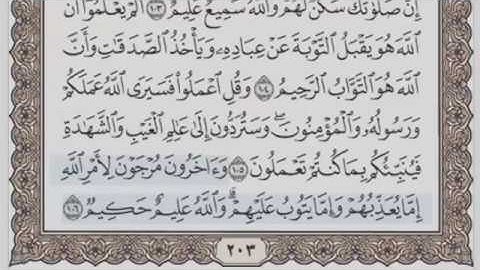 إِنَّ صَلَوٰتَكَ سَكَنٌ لَّهُمْ وَٱللَّهُ سَمِيعٌ عَلِيمٌ ١٠٣ أَلَمْ يَعْلَمُوٓا۟ أَنَّ
ٱللَّهَ هُوَ يَقْبَلُ ٱلتَّوْبَةَ عَنْ عِبَادِهِۦ وَيَأْخُذُ ٱلصَّدَقَٰتِ وَأَنَّ
ٱللَّهَ هُوَ ٱلتَّوَّابُ ٱلرَّحِيمُ ١٠٤ وَقُلِ ٱعْمَلُوا۟ فَسَيَرَى ٱللَّهُ عَمَلَكُمْ
وَرَسُولُهُۥ وَٱلْمُؤْمِنُونَ ۖ وَسَتُرَدُّونَ إِلَىٰ عَٰلِمِ ٱلْغَيْبِ وَٱلشَّهَٰدَةِ
فَيُنَبِّئُكُم بِمَا كُنتُمْ تَعْمَلُونَ ١٠٥ وَءَاخَرُونَ مُرْجَوْنَ لِأَمْرِ ٱللَّهِ
إِمَّا يُعَذِّبُهُمْ وَإِمَّا يَتُوبُ عَلَيْهِمْ ۗ وَٱللَّهُ عَلِيمٌ حَكِيمٌ ١٠٦
٢٠٣